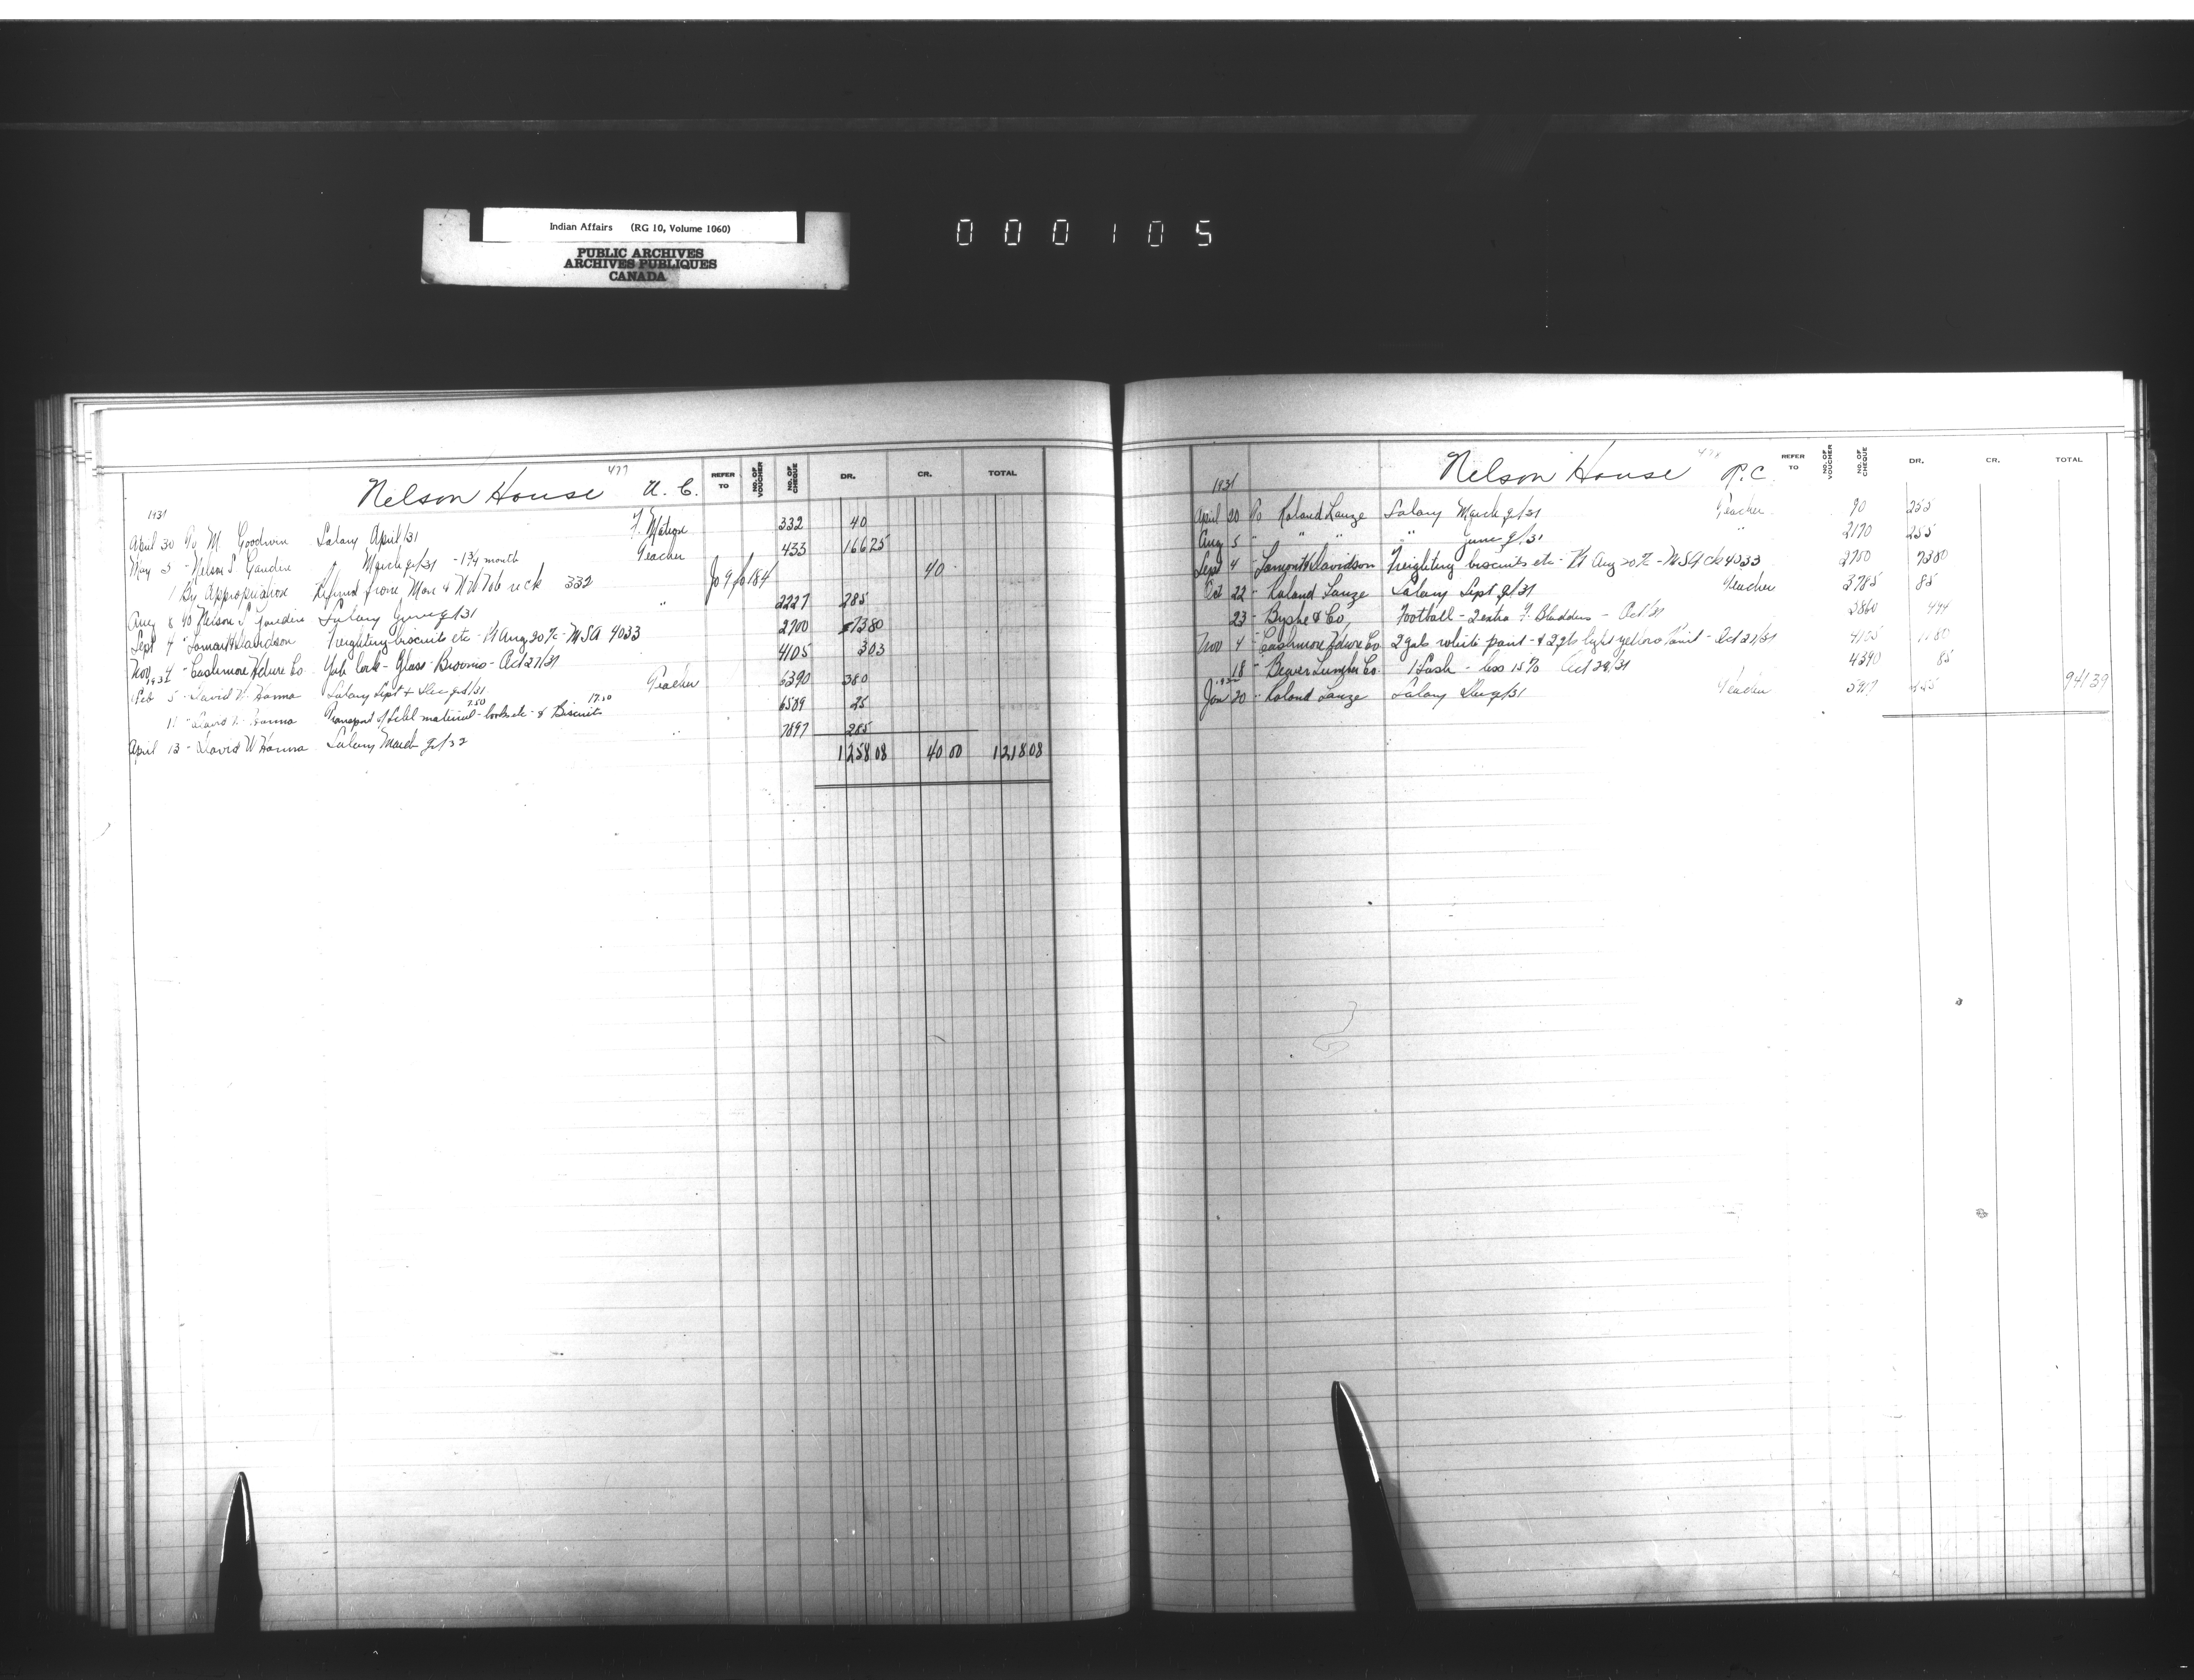 Indian Affairs (RG 10, Volume 1060)
PUBLIC ARCHIVES
ARCHIVES PUBLIQUES
CANADA
000105
477
Nelson House U. C.
REFER TO NO. OF VOUCHER NO. OF CHEQUE DR. CR. TOTAL
1931
April 30 To M. Goodwin Salary April/31 F. Matron 332 40
May 5 - Nelson S. " March qr/31 - 1 3/4 month Teacher 433 166 25
1 By Appropriation Refund from ck 332 Jo 9 fo 184 40 -
Aug 8 To Nelson S. Salary June qr/31 " 2227 285
Sept 4 " Lamont & Davidson Freighting biscuits etc - Pt Aug 20 % - MSA 4033 2700 73 80
Nov 4 - Cashmore Hdwre Co Yale lock - Glass - Brooms - Oct 27/31 4105 3 03
1932
Feb 5 - David W. Hanna Salary Sept & Dec qrs/31 Teacher 6390 380
11 - David W. Hanna Transport of Schl material 7.50 - books etc - & Biscuits 17.50 6589 25
April 13 - David W Hanna Salary March qr/32 " 7897 285
1258 08 40 00 1218 08
478
Nelson House R.C.
REFER TO NO. OF VOUCHER NO. OF CHEQUE DR. CR. TOTAL
1931
April 20 To Roland Lauze Salary March qr/31 Teacher 90 255
Aug 5 - " " " June qr/31 " 2170 255
Sept 4 - Lamont & Davidson Freighting biscuits etc - Pt Aug 20 % - MSA ck 4033 2750 73 80
Oct 22 - Roland Lauze Salary Sept qr/31 Teacher 3785 85
23 - Byshe & Co, Football - 2 extra F. Bladders - Oct/31 3860 4 94
Nov 4 " Cashmore Hdwre Co 2 gals white paint - & 2 gals light yellow Paint - Oct 27/31 4105 80
18 - Beaver Lumber Co. 1 Sash - less 15% Oct 29/31 4390 85
1932
Jan 20 - Roland Lauze Salary Dec qr/31 Teacher 255 941 39